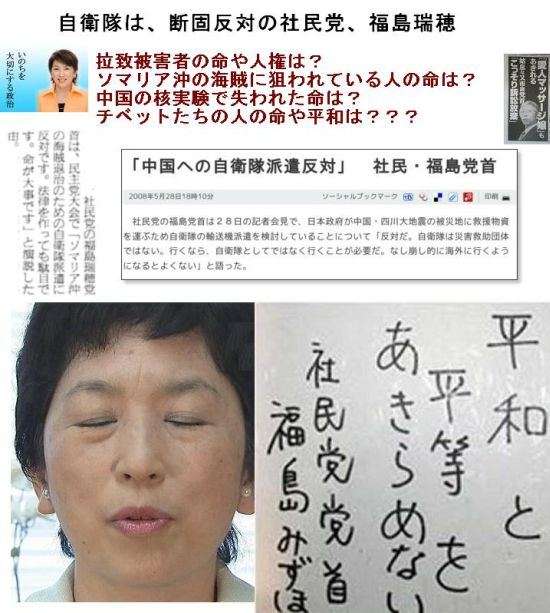 自衛隊は、断固反対の社民党、福島瑞穂
いのちを
大切にする政治
拉致被害者の命や人権は？
ソマリア沖の海賊に狙われている人の命は？
中国の核実験で失われた命は？
チベットたちの人の命や平和は？？？
社民党の福島瑞穂党
首は、民主党大会で「ソマリア沖
の海賊退治のための自衛隊派遣に
反対です。法律を作っても駄目で
す。命が大事です」と演説した
「中国への自衛隊派遣反対」 社民・福島党首
2008年5月28日18時10分
ソーシャルブックマーク
印刷
社民党の福島党首は２８日の記者会見で、日本政府が中国・四川大地震の被災地に救援物資
を運ぶため自衛隊の輸送機派遣を検討していることについて「反対だ。自衛隊は災害救助団体
ではない。行くなら、自衛隊としてではなく行くことが必要だ。なし崩し的に海外に行くよう
になるとよくない」と語った。
平和と
平等を
あきらめない
社民党党首
福島みずほ